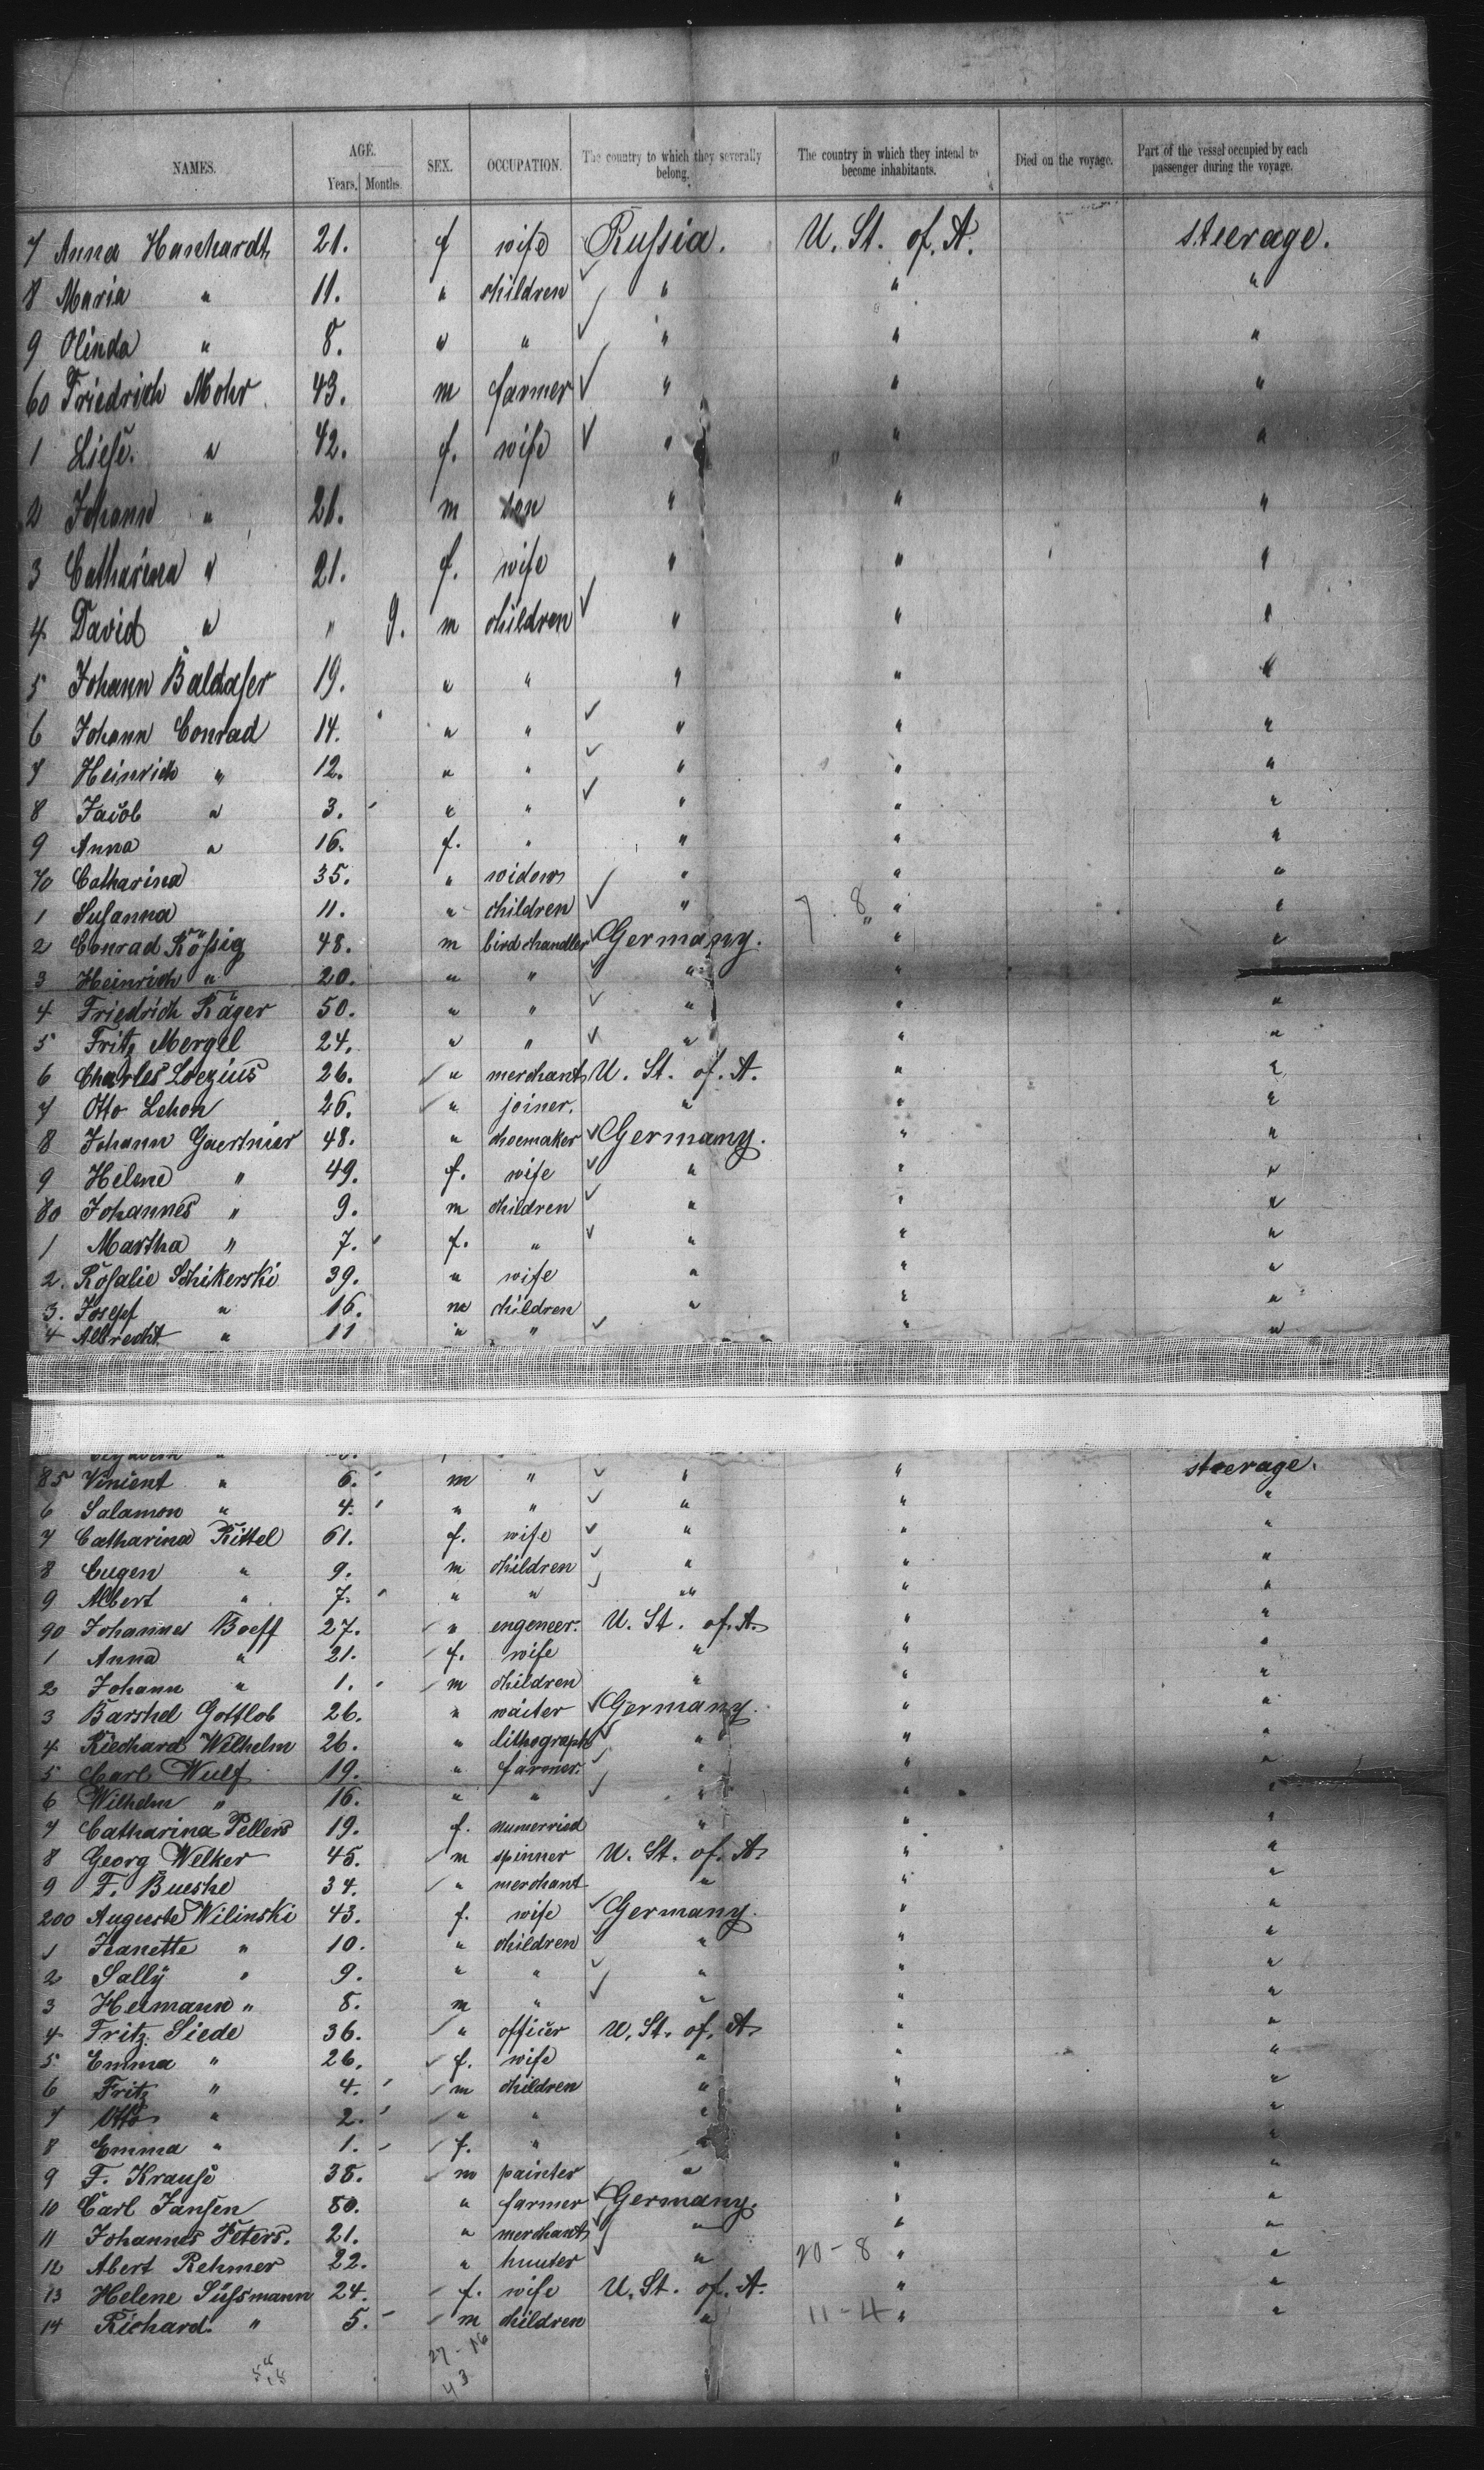 NAMES. AGE. Years. Months. SEX. OCCUPATION. The country to which they severally belong. The country in which they intend to become inhabitants. Died on the voyage. Part of the vessel occupied by each passenger during the voyage.
7 Anna Hanhardt 21. f wife Russia. U. St. of. A. steerage.
8 Maria " 11. " children " " "
9 Olinda " 8. " " " " "
60 Friedrich Mohr 43. m farmer " " "
1 Liese. " 42. f. wife " " "
2 Johann " 21. m son " " "
3 Catharina " 21. f. wife " " "
4 David " " 9. m children " " "
5 Johann Baldaser 19. " " " " "
6 Johann Conrad 14. " " " " "
7 Heinrich " 12. " " " " "
8 Jacob " 3. " " " " "
9 Anna " 16. f. " " " "
70 Catharina 35. " widow " " "
1 Susanna 11. " children " " "
2 Conrad Rößig 48. m birdchandler Germany. " "
3 Heinrich " 20. " " " " "
4 Friedrich Räger 50. " " " " "
5 Fritz Mergel 24. " " " " "
6 Charles Loezius 26. " merchant U. St. of. A. " "
7 Otto Lehon 26. " joiner. " " "
8 Johann Gaertnier 48. " shoemaker Germany. " "
9 Helene " 49. f. wife " " "
80 Johannes " 9. m children " " "
1 Martha " 7. f. " " " "
2. Rosalie Schikerski 39. " wife " " "
3. Josepf " 16. m children " " "
4 Albrecht " 11 " " " "
85 Vinient " 6. m " " " steerage.
6 Salamon " 4. " " " " "
7 Catharina Rittel 61. f. wife " " "
8 Eugen " 9. m children " " "
9 Albert " 7. " " " " "
90 Johannes Boeff 27. " engeneer. U. St. of. A. " "
1 Anna " 21. f. wife " " "
2 Johann " 1. m children " " "
3 Barshel Gottlob 26. " waiter Germany. " "
4 Riechard Wilhelm 26. " lithograph " " "
5 Carl Wulf 19. " farmer. " " "
6 Wilhelm " 16. " " " " "
7 Catharina Pellers 19. f. numerried " " "
8 Georg Welker 45. m spinner U. St. of. A. " "
9 F. Bueshe 34. " merchant " " "
200 Auguste Wilinski 43. f. wife Germany. " "
1 Jeanette " 10. " children " " "
2 Sally " 9. " " " " "
3 Hermann " 8. m " " " "
4 Fritz Siede 36. " officer U. St. of. A. " "
5 Emma " 26. f. wife " " "
6 Fritz " 4. m children " " "
7 Otto " 2. " " " " "
8 Emma " 1. f. " " " "
9 F. Krause 38. m painter " " "
10 Carl Jansen 50. " farmer Germany. " "
11 Johannes Peters. 21. " merchant " " "
12 Abert Rehmer 22. " hunter " 20-8 " "
13 Helene Süssmann 24. f. wife U. St. of. A. " "
14 Richard. " 5. m children " 11-4 " "
27-16
43